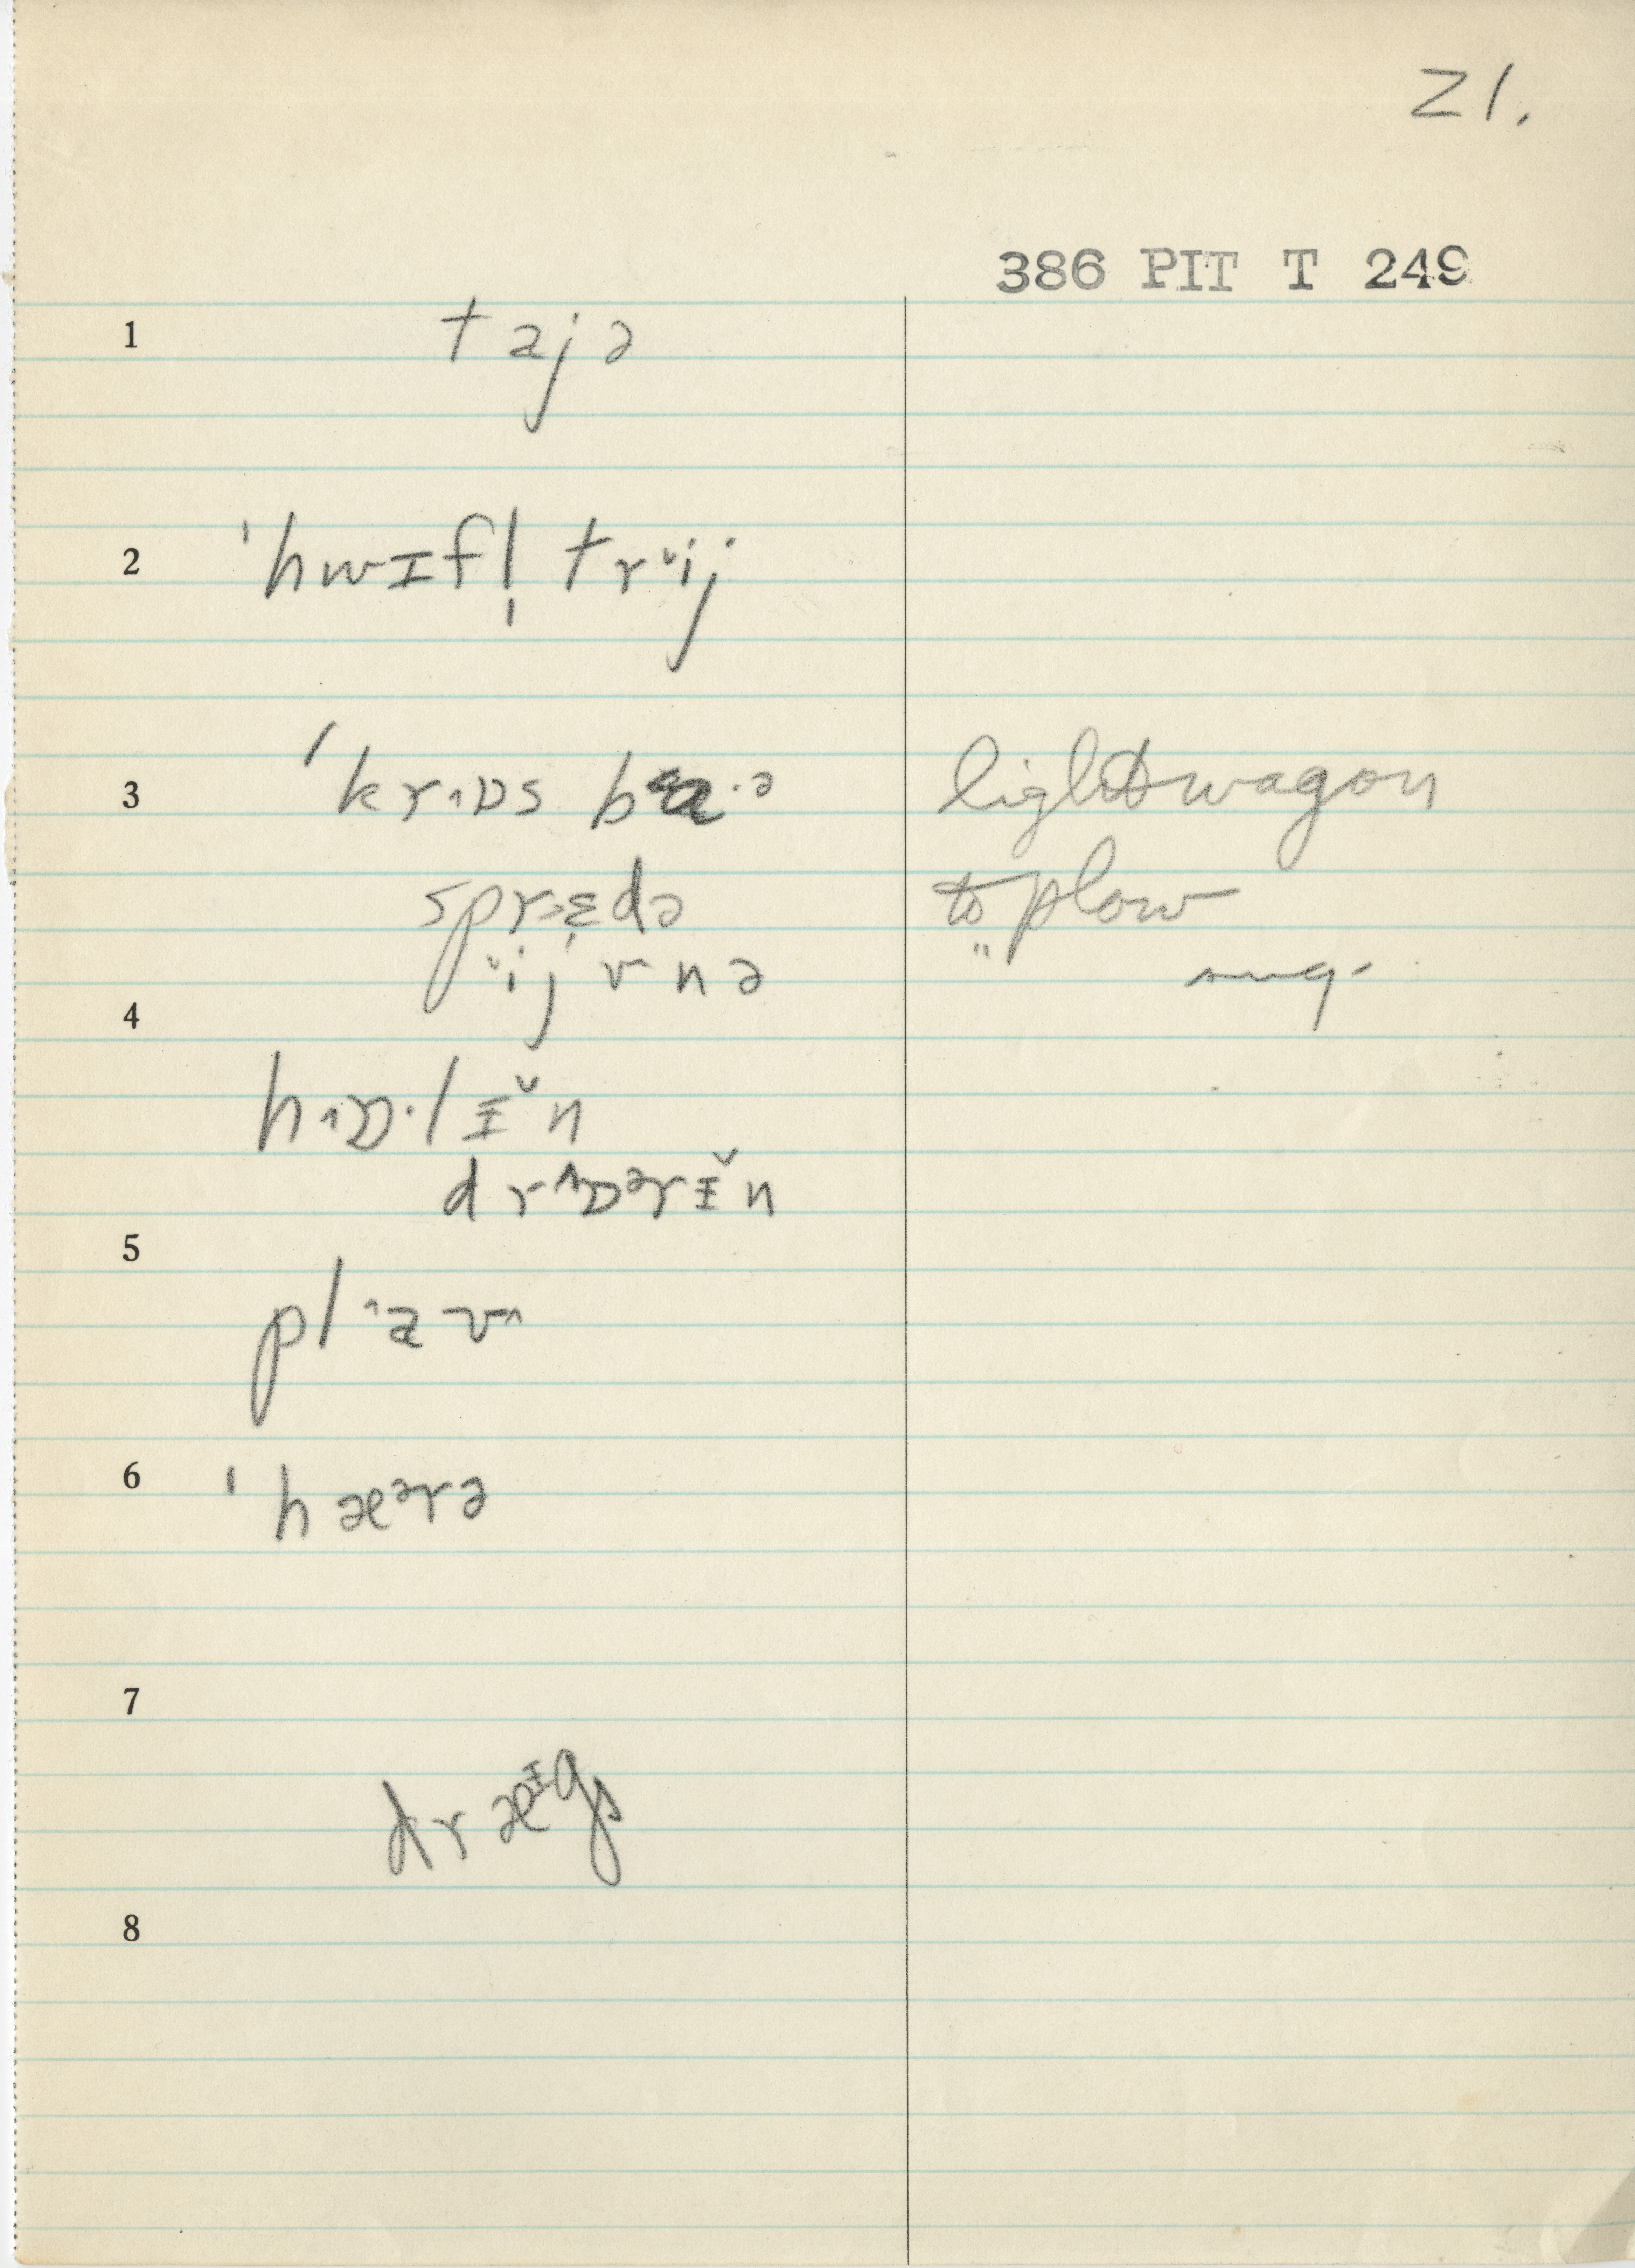 21.
386 PIT T 249
1 tajə
2 ˈhwɪfl̩ trᵛij
3 ˈkr˄ɒs ba·ə light wagon
spr˃ɛ̨də to plow
ᵛijvnə " " sug.
4
hˑ˄ɒ·lɪ̆n
dr˄ɒᵊrɪ̆n
5
pl˄aʊ˄
6 ˈhæᵊrə
7
dræᶦgs
8